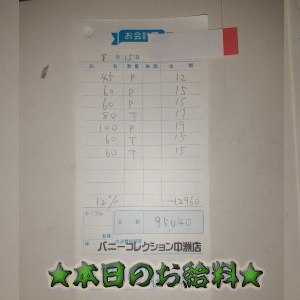 お会計票
8月15日
品名 数量 単価 金額
45 P 12
60 P 15
60 P 15
80 T 17
100 P 19
60 T 15
60 T 15
12% -12960
テーブル
合計 95040
バニーコレクション中洲店
★本日のお給料★